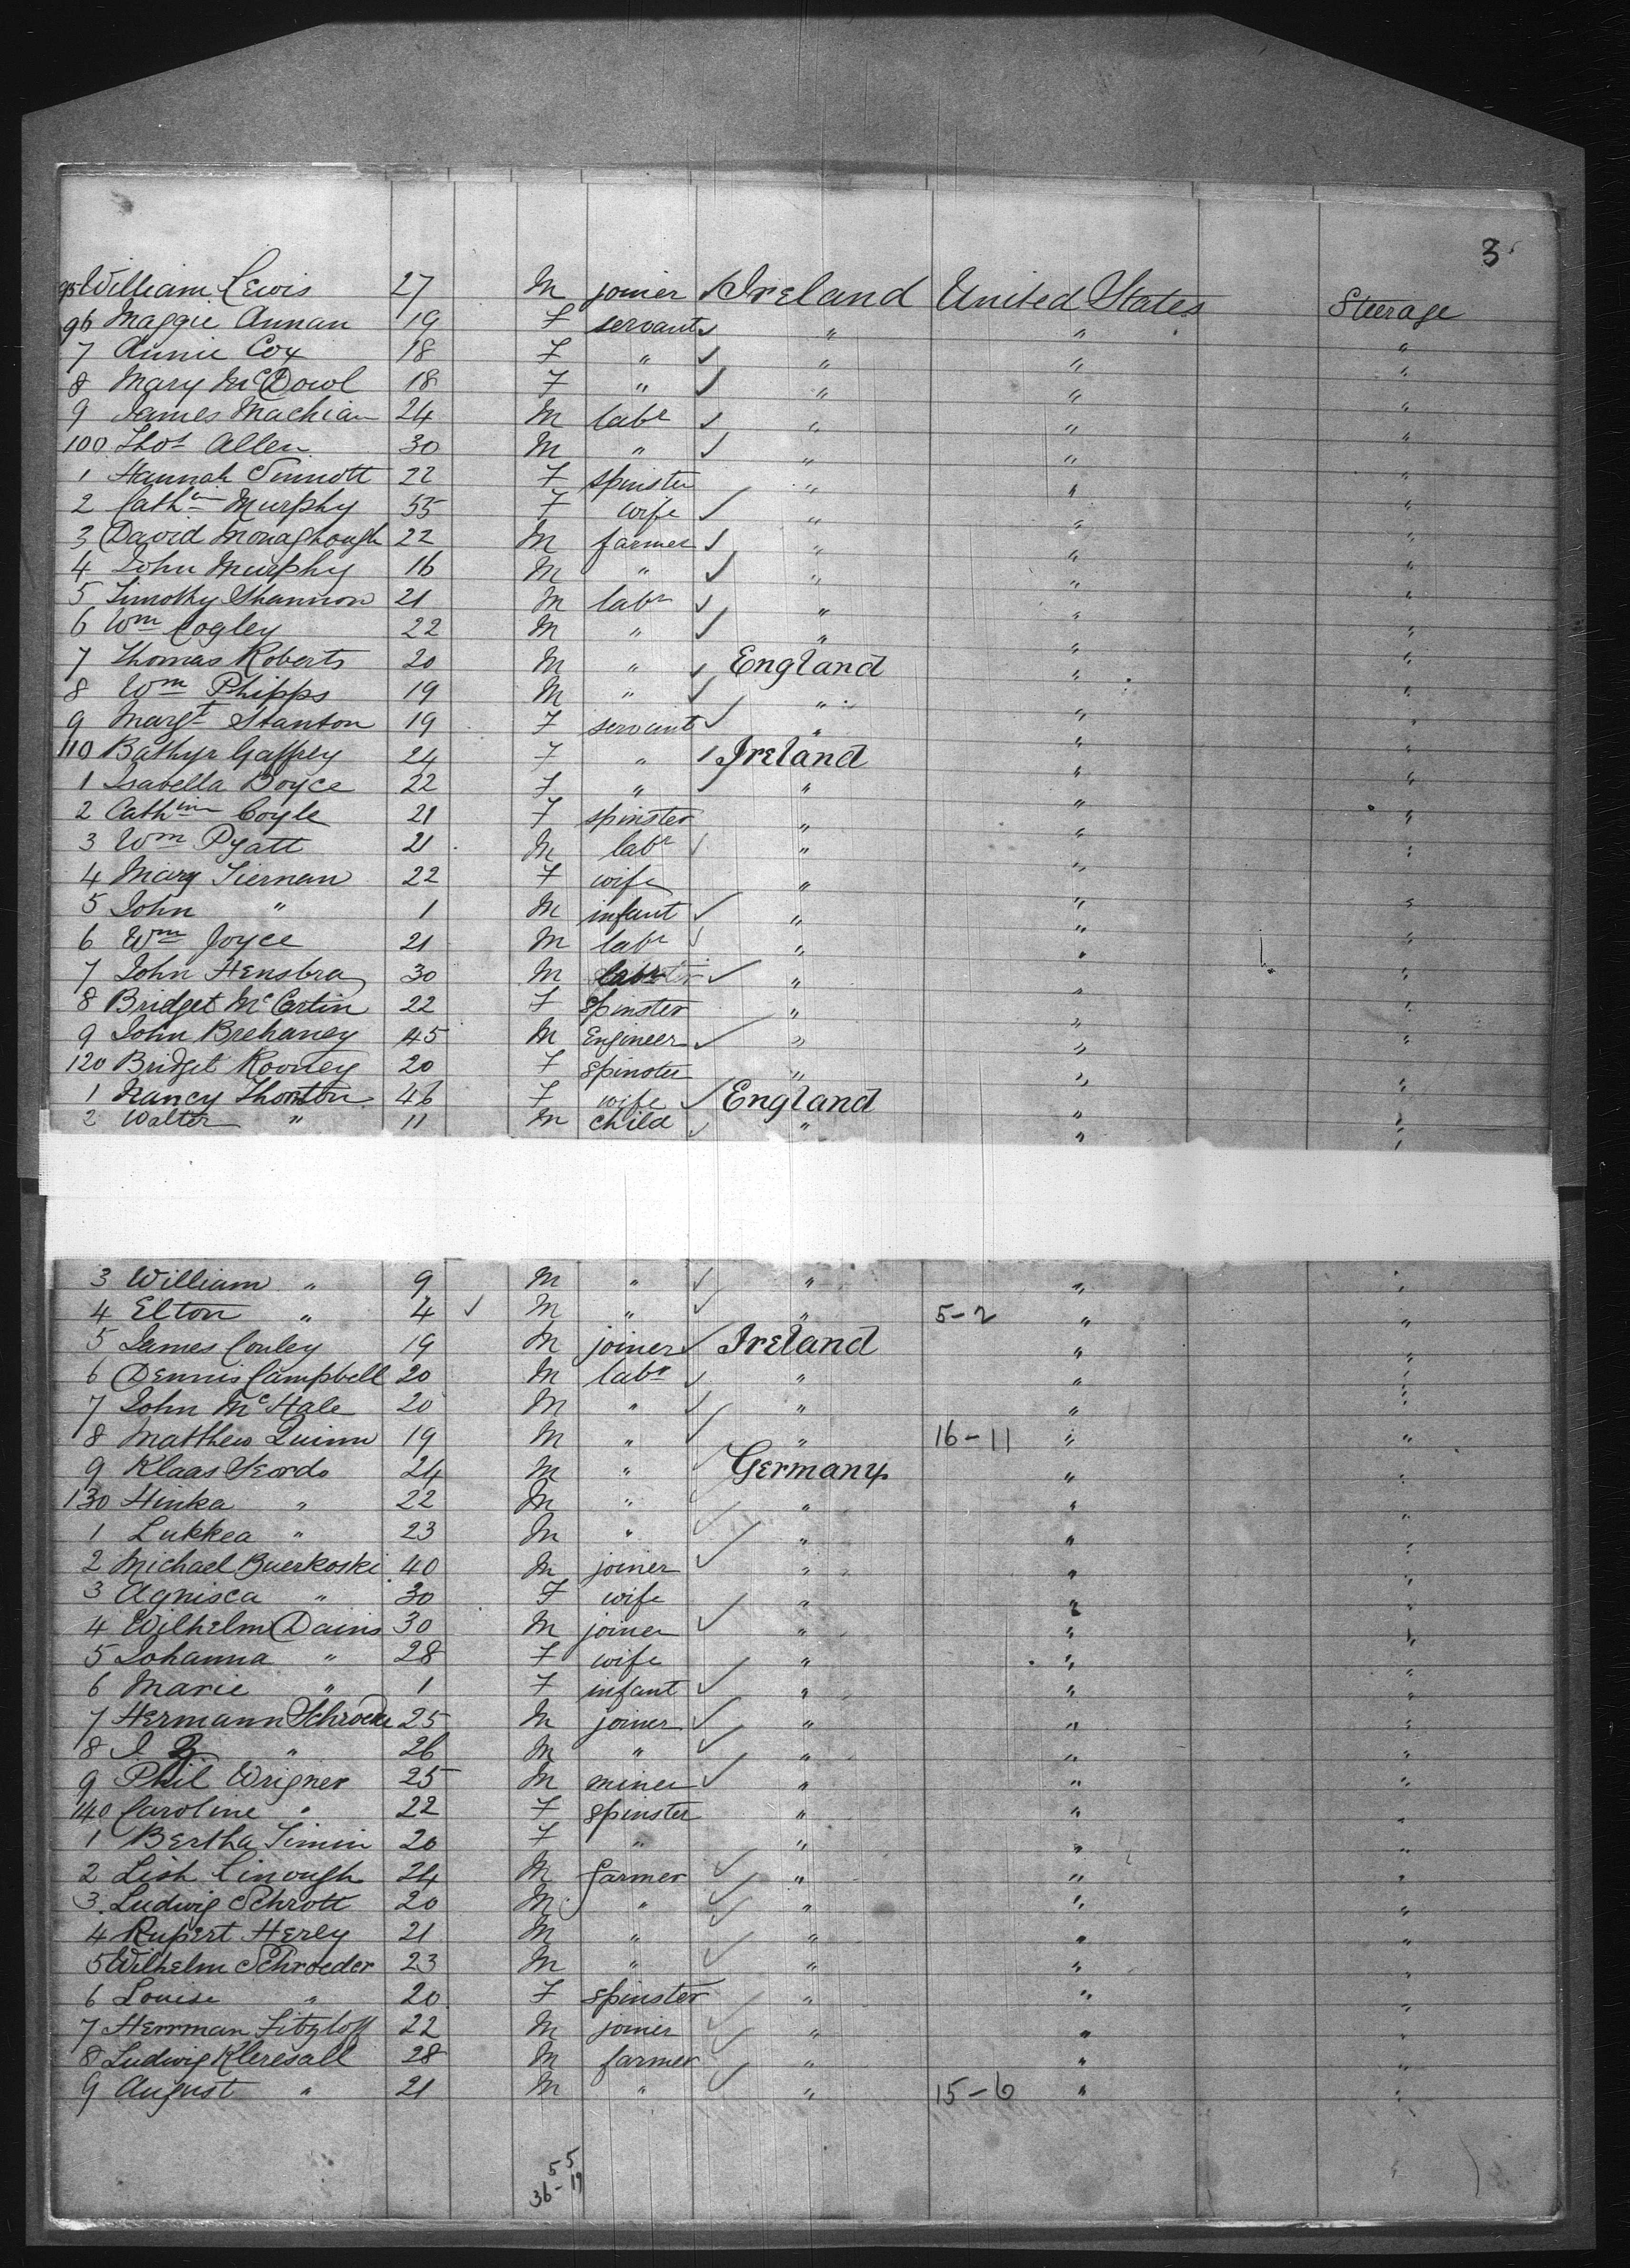 3
95 William Lewis 27 M joiner ✓ Ireland United States Steerage
96 Maggie Annan 19 F servant ✓ " " "
7 Annie Cox 18 F " ✓ " " "
8 Mary McDowl 18 F " ✓ " " "
9 James Machian 24 M labr ✓ " " "
100 Thos Allen 30 M " ✓ " " "
1 Hannah Sinnott 22 F spinster " " "
2 Cathin Murphy 35 F wife ✓ " " "
3 David Monaghough 22 M farmer ✓ " " "
4 John Murphy 16 M " ✓ " " "
5 Timothy Shannon 21 M labr ✓ " " "
6 Wm Cogley 22 M " ✓ " " "
7 Thomas Roberts 20 M " ✓ England " "
8 Wm Phipps 19 M " ✓ " " "
9 Margt Stanton 19 F servant ✓ " " "
110 Bathyr Gaffrey 24 F " ✓ Ireland " "
1 Isabella Boyce 22 F " ✓ " " "
2 Cathin Coyle 21 F spinster " " "
3 Wm Pyatt 21 M labr ✓ " " "
4 Mary Tiernan 22 F wife " " "
5 John " 1 M infant ✓ " " "
6 Wm Joyce 21 M labr ✓ " " "
7 John Hensbra 30 M labr ✓ " " "
8 Bridget McCartin 22 F Spinster " " "
9 John Brehaney 45 M Engineer ✓ " " "
120 Bridget Rooney 20 F Spinster " " "
1 Nancy Thornton 46 F wife ✓ England " "
2 Walter " 11 M child ✓ " " "
3 William " 9 M " ✓ " " "
4 Elton " 4 ✓ M " ✓ " 5-2 " "
5 James Conley 19 M joiner ✓ Ireland " "
6 Dennis Campbell 20 M labr ✓ " " "
7 John McHale 20 M " ✓ " " "
8 Matthew Quinn 19 M " ✓ " 16-11 " "
9 Klaas 24 M " ✓ Germany " "
130 Hinka " 22 M " ✓ " " "
1 Lukkea " 23 M " ✓ " " "
2 Michael Buerkoski 40 M joiner ✓ " " "
3 Agnisca " 30 F wife " " "
4 Wilhelm Dains 30 M joiner ✓ " " "
5 Johanna " 28 F wife " " "
6 Marie " 1 F infant ✓ " " "
7 Hermann Schroeder 25 M joiner ✓ " " "
8 J. " 26 M " ✓ " " "
9 Phil Wrigner 25 M miner ✓ " " "
140 Caroline " 22 F spinster " " "
1 Bertha Timin 20 F " " " "
2 Lish Cinough 24 M farmer ✓ " " "
3 Ludwig Schrott 20 M " ✓ " " "
4 Rupert Herly 21 M " ✓ " " "
5 Wilhelm Schroeder 23 M " ✓ " " "
6 Louise " 20 F spinster " " "
7 Herrman Fitzloff 22 M joiner ✓ " " "
8 Ludwig Kleresall 28 M farmer ✓ " " "
9 August " 21 M " ✓ " 15-6 " "
5 5
36-19